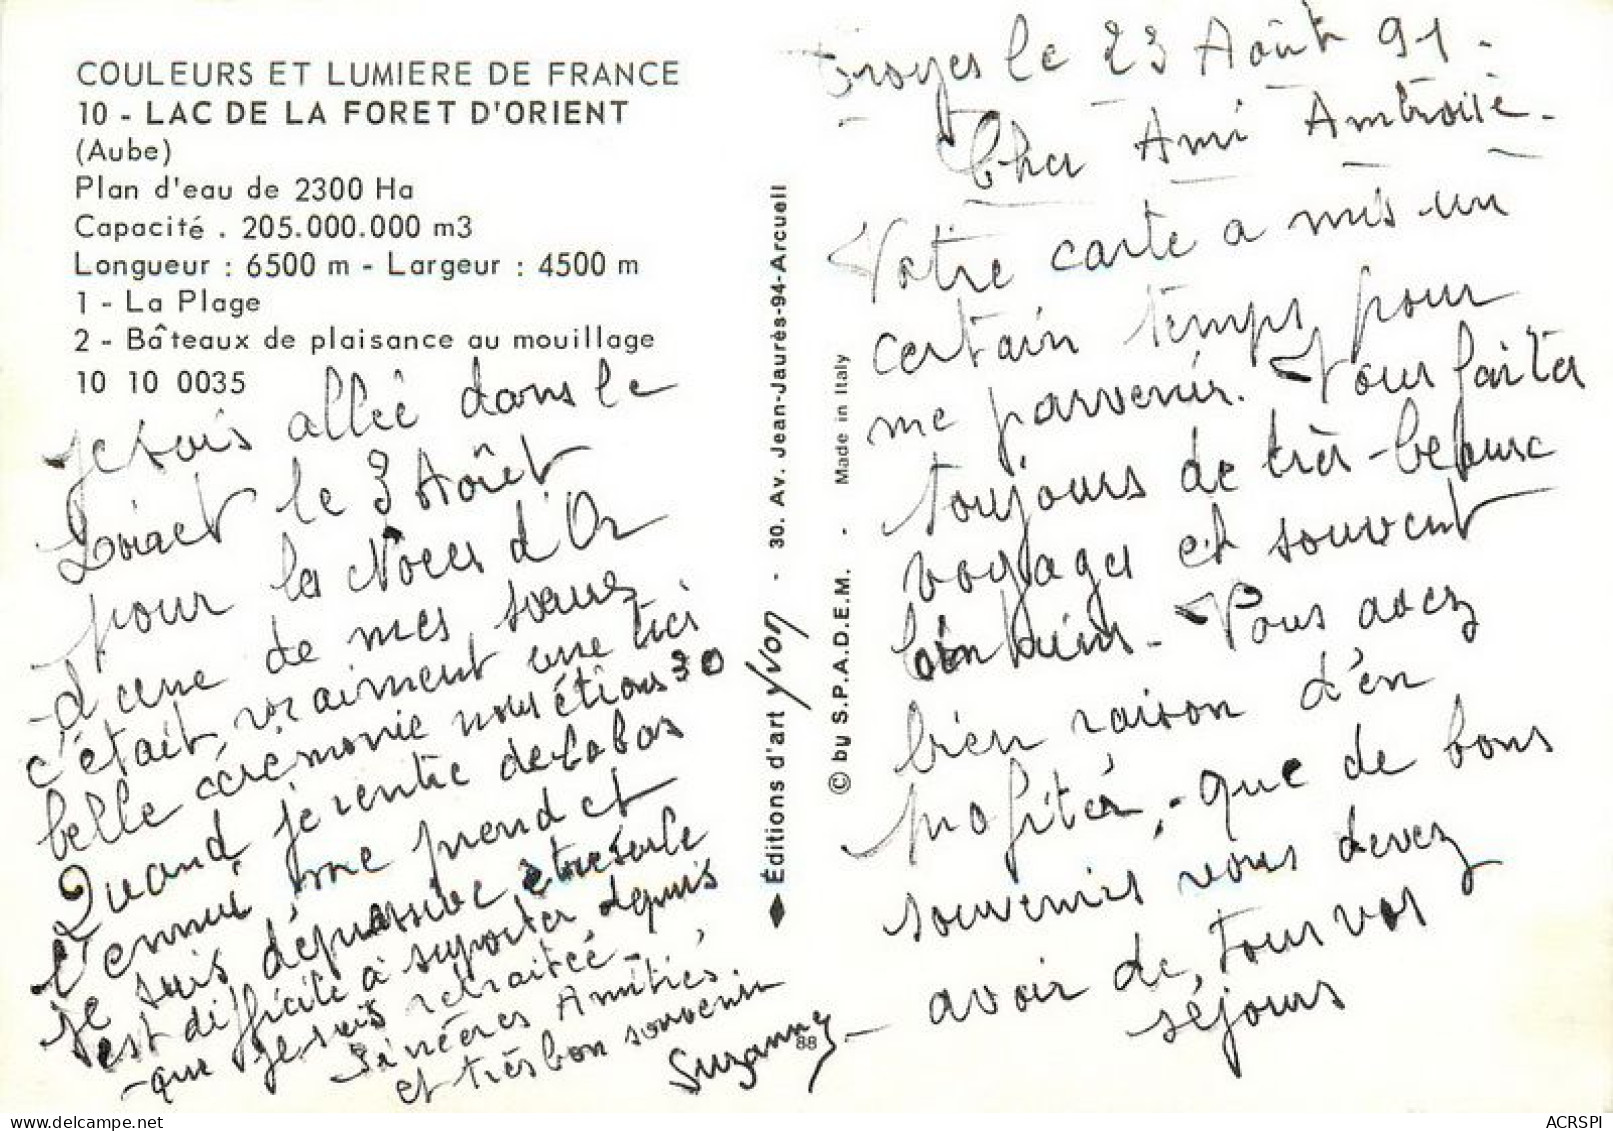 COULEURS ET LUMIERE DE FRANCE
10 - LAC DE LA FORET D'ORIENT
(Aube)
Plan d'eau de 2300 Ha
Capacité . 205.000.000 m3
Longueur : 6500 m - Largeur : 4500 m
1 - La Plage
2 - Bâteaux de plaisance au mouillage
10 10 0035
Éditions d'art yvon - 30. Av. Jean-Jaurès-94-Arcueil
© by S.P.A.D.E.M. - Made in Italy
Troyes le 23 Août 91.
Cher Ami Ambroise.
Votre carte a mis un
certain temps pour
me parvenir. Vous faites
toujours de très beaux
voyages et souvent
bien loins. Vous avez
bien raison d'en
profiter, que de bons
souvenirs vous devez
avoir de, tous vos
séjours
Je suis allée dans le
Loiret le 3 Août
pour les Noces d'Or
d'une de mes soeurs
c'était, vraiment une très
belle cérémonie nous étions 30
Quand je rentre de labas
l'ennui me prend et
je suis dépressive, être seule
est difficile à supporter, depuis
que je suis retraitée.
Sincères Amitiés.
et très bon souvenir
Suzanne
88
ACRSPI